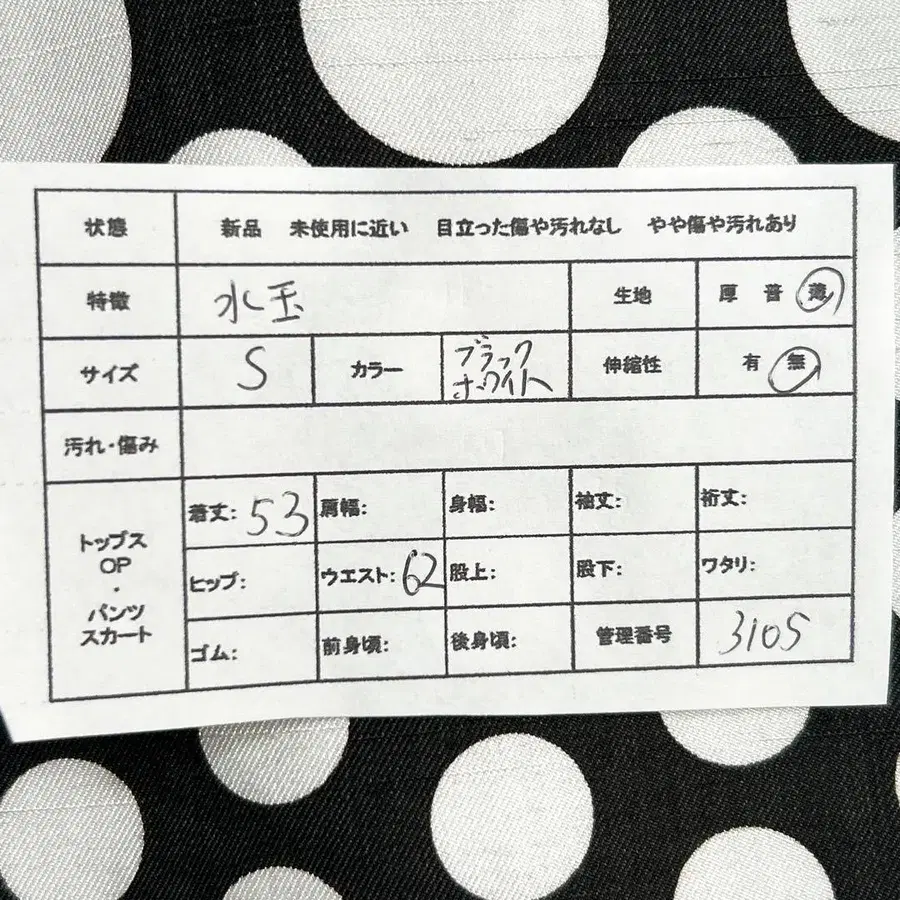 状態 新品 未使用に近い 目立った傷や汚れなし やや傷や汚れあり
特徴 水玉 生地 厚 普 薄
サイズ S カラー ブラック ホワイト 伸縮性 有 無
汚れ・傷み
トップス
OP
・
パンツ
スカート
着丈: 53 肩幅: 身幅: 袖丈: 裄丈:
ヒップ: ウエスト: 62 股上: 股下: ワタリ:
ゴム: 前身頃: 後身頃: 管理番号 3105